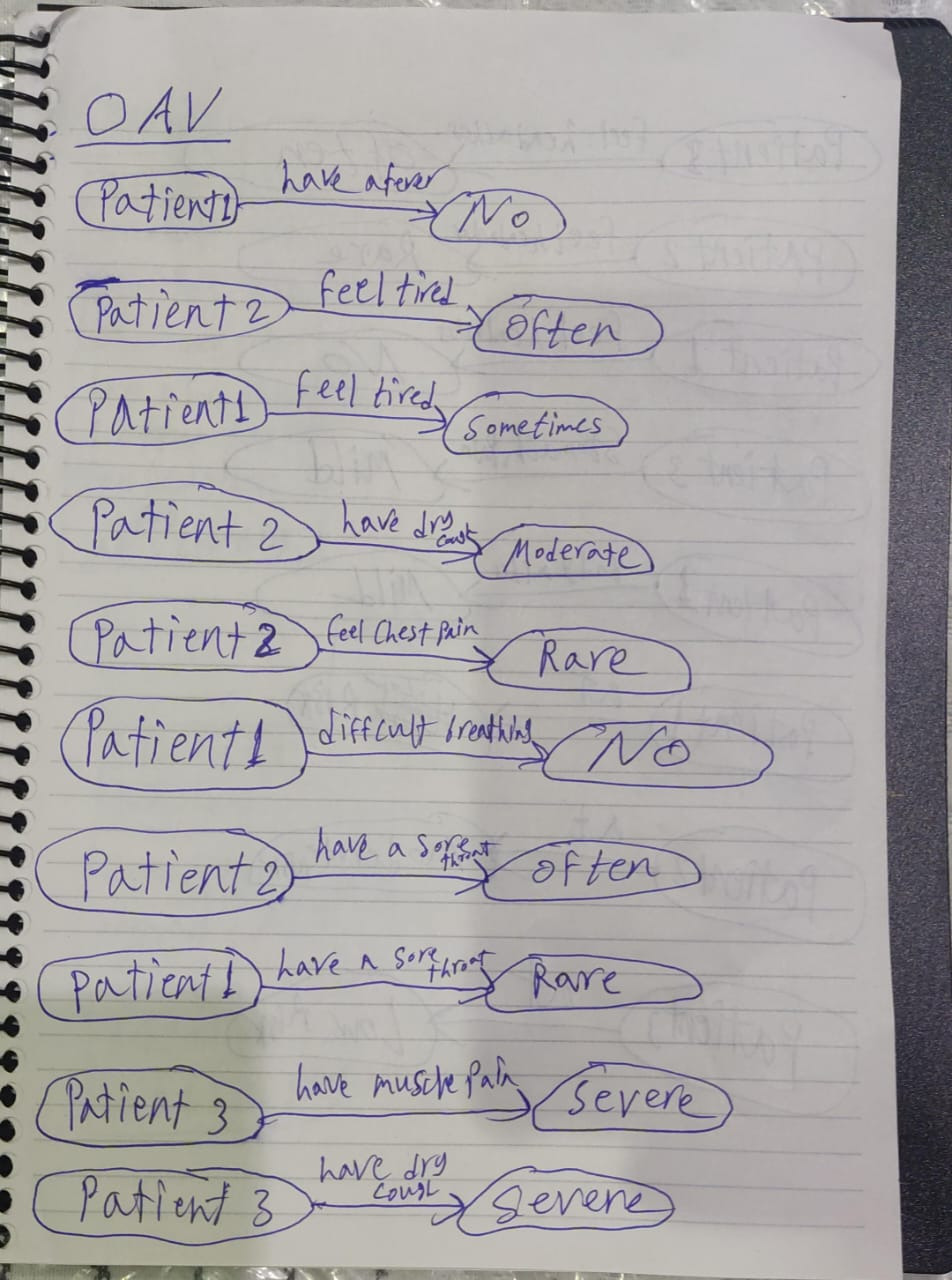 OAV
Patient1 have a fever No
Patient 2 feel tired often
Patient1 feel tired Sometimes
Patient 2 have dry Moderate
Patient 2 feel Chest Pain Rare
Patient1 difficult breathing No
Patient 2 have a sore throat often
Patient1 have a sore throat Rare
Patient 3 have muscle Pain Severe
Patient 3 have dry cough Severe